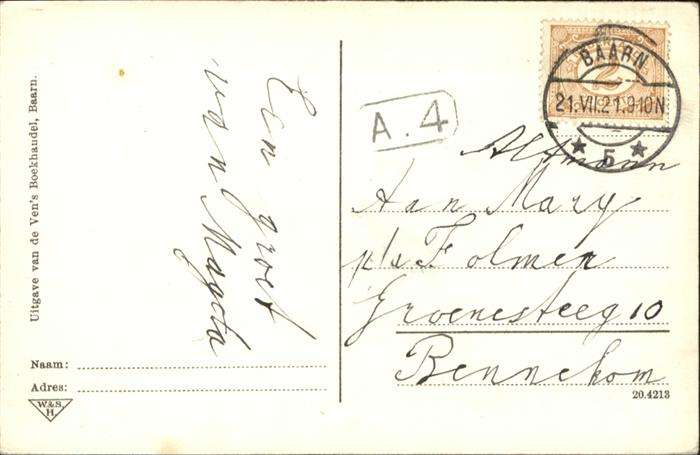 Uitgave van de Ven's Boekhandel, Baarn.
Een groet
van Magota
Naam:
Adres:
W.&S.
H.
A.4
BAARN
21.VII.21.9-10N
5
2
Altmann
Aan Mary
p/a Folmer
Groenesteeg 10
Bennekom
20.4213